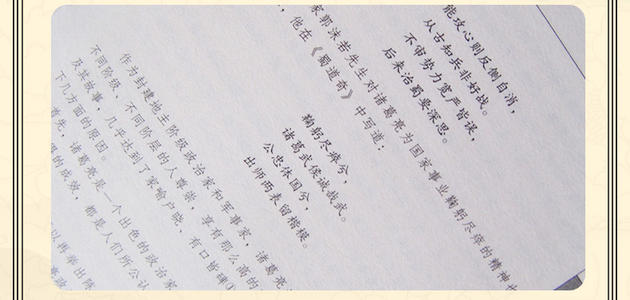 能攻心则反侧自消，
从古知兵非好战。
不审势力宽严皆误，
后来治蜀要深思。
家郭沫若先生对诸葛亮为国家事业鞠躬尽瘁的精神
，他在《蜀道奇》中写道：
鞠躬尽瘁兮，
诸葛武侯诚哉武。
公忠体国兮，
出师两表留楷模。
作为封建地主阶级政治家和军事家，诸葛亮
不同阶级、不同阶层的人尊崇，享有那么高的
及其故事，几乎达到了家喻户晓，有口皆碑
下几方面的原因。
首先，诸葛亮是一个出色的政治家
的成效，都是人们所公认
以再举出师